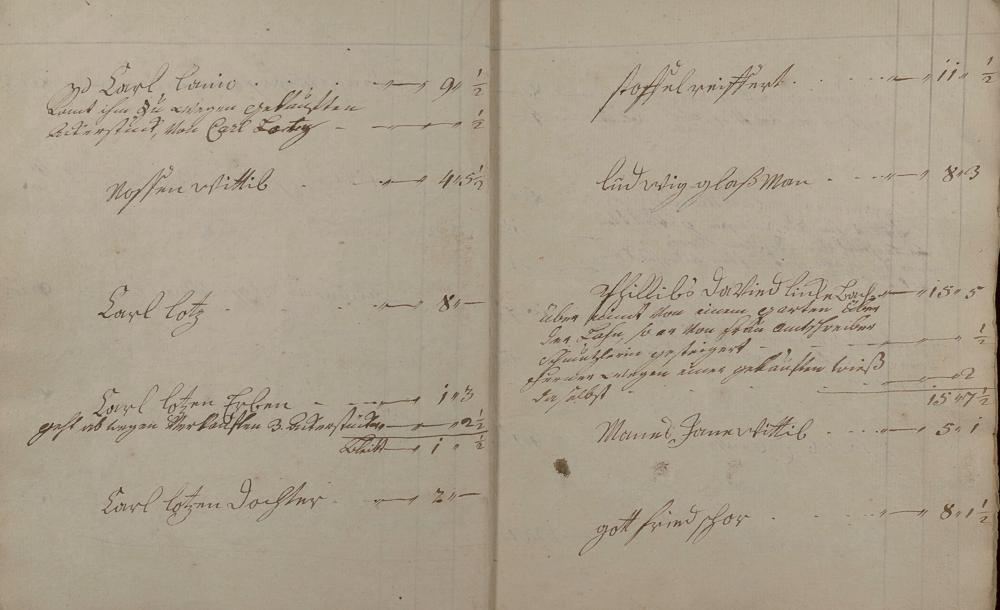 Carl Lanio . . . — 9 " ½
Komt ihm Zu wegen gekauften
Ackerstück, von Carl Lotz — — " ½
Nossen Wittib . — 4 " 5½
Carl lotz . — 8 " —
Carl lotzen Erben — — 1 " 3
geht ab wegen Verkauften 3. Ackerstücker — " 2½
Bleibt — 1 " ½
Carl lotzen Dochter . — 2 " —
Stoffel reiffert . — 11 " ½
ludwig glaßman . — 8 " 3
Phillibs Davied linkeBach — 15 " 5
über kumt Von einem garten über
der Lahn, so er Von frau amtschreiber
gesteigert — — " ½
ferner wegen einer gekauften wieß
daselbst — " 2
15 " 7½
Manus Jane Wittib . — 5 " 1
gottfried schor . — 8 " 1½